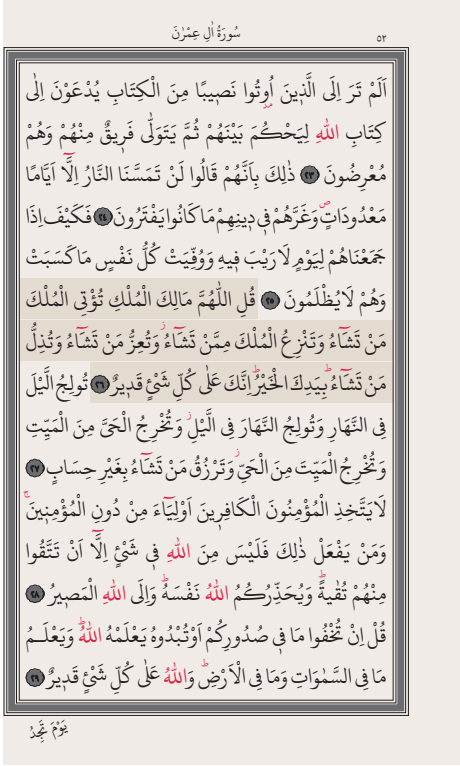 سُورَةُ اٰلِ عِمْرٰنَ ٥٢
اَلَمْ تَرَ اِلَى الَّذٖينَ اُو۫تُوا نَصٖيبًا مِنَ الْكِتَابِ يُدْعَوْنَ اِلٰى
كِتَابِ اللّٰهِ لِيَحْكُمَ بَيْنَهُمْ ثُمَّ يَتَوَلّٰى فَرٖيقٌ مِنْهُمْ وَهُمْ
مُعْرِضُونَ ﴿٢٣﴾ ذٰلِكَ بِاَنَّهُمْ قَالُوا لَنْ تَمَسَّنَا النَّارُ اِلَّٓا اَيَّامًا
مَعْدُودَاتٍࣕ وَغَرَّهُمْ فٖي دٖينِهِمْ مَا كَانُوا يَفْتَرُونَ ﴿٢٤﴾ فَكَيْفَ اِذَا
جَمَعْنَاهُمْ لِيَوْمٍ لَا رَيْبَ فٖيهِ وَوُفِّيَتْ كُلُّ نَفْسٍ مَا كَسَبَتْ
وَهُمْ لَا يُظْلَمُونَ ﴿٢٥﴾ قُلِ اللّٰهُمَّ مَالِكَ الْمُلْكِ تُؤْتِي الْمُلْكَ
مَنْ تَشَٓاءُ وَتَنْزِعُ الْمُلْكَ مِمَّنْ تَشَٓاءُؗ وَتُعِزُّ مَنْ تَشَٓاءُ وَتُذِلُّ
مَنْ تَشَٓاءُؕ بِيَدِكَ الْخَيْرُؕ اِنَّكَ عَلٰى كُلِّ شَيْءٍ قَدٖيرٌ ﴿٢٦﴾ تُولِجُ الَّيْلَ
فِي النَّهَارِ وَتُولِجُ النَّهَارَ فِي الَّيْلِؗ وَتُخْرِجُ الْحَيَّ مِنَ الْمَيِّتِ
وَتُخْرِجُ الْمَيِّتَ مِنَ الْحَيِّؗ وَتَرْزُقُ مَنْ تَشَٓاءُ بِغَيْرِ حِسَابٍ ﴿٢٧﴾
لَا يَتَّخِذِ الْمُؤْمِنُونَ الْكَافِرٖينَ اَوْلِيَٓاءَ مِنْ دُونِ الْمُؤْمِنٖينَۚ
وَمَنْ يَفْعَلْ ذٰلِكَ فَلَيْسَ مِنَ اللّٰهِ فٖي شَيْءٍ اِلَّٓا اَنْ تَتَّقُوا
مِنْهُمْ تُقٰيةًؕ وَيُحَذِّرُكُمُ اللّٰهُ نَفْسَهُؕ وَاِلَى اللّٰهِ الْمَصٖيرُ ﴿٢٨﴾
قُلْ اِنْ تُخْفُوا مَا فٖي صُدُورِكُمْ اَوْ تُبْدُوهُ يَعْلَمْهُ اللّٰهُؕ وَيَعْلَمُ
مَا فِي السَّمٰوَاتِ وَمَا فِي الْاَرْضِؕ وَاللّٰهُ عَلٰى كُلِّ شَيْءٍ قَدٖيرٌ ﴿٢٩﴾
يَوْمَ تَجِدُ